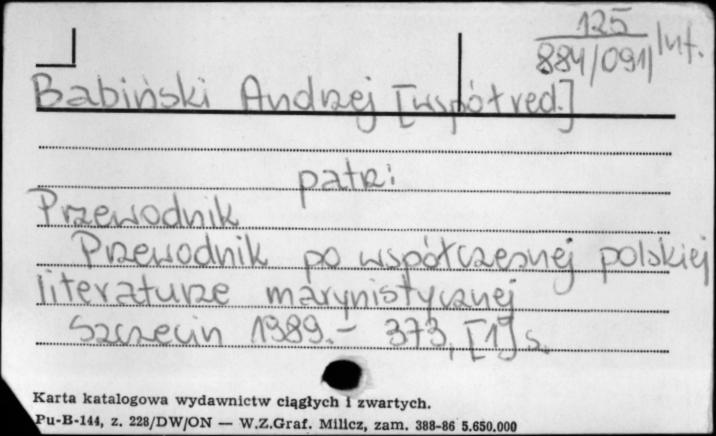 125
884/091/ Inf.
Babiński Andrzej [współred.]
patrz:
Przewodnik
Przewodnik po współczesnej polskiej
literaturze marynistycznej
Szczecin 1989.- 373, [1] s.
Karta katalogowa wydawnictw ciągłych i zwartych.
Pu-B-144, z. 228/DW/ON — W.Z.Graf. Milicz, zam. 388-86 5.650.000